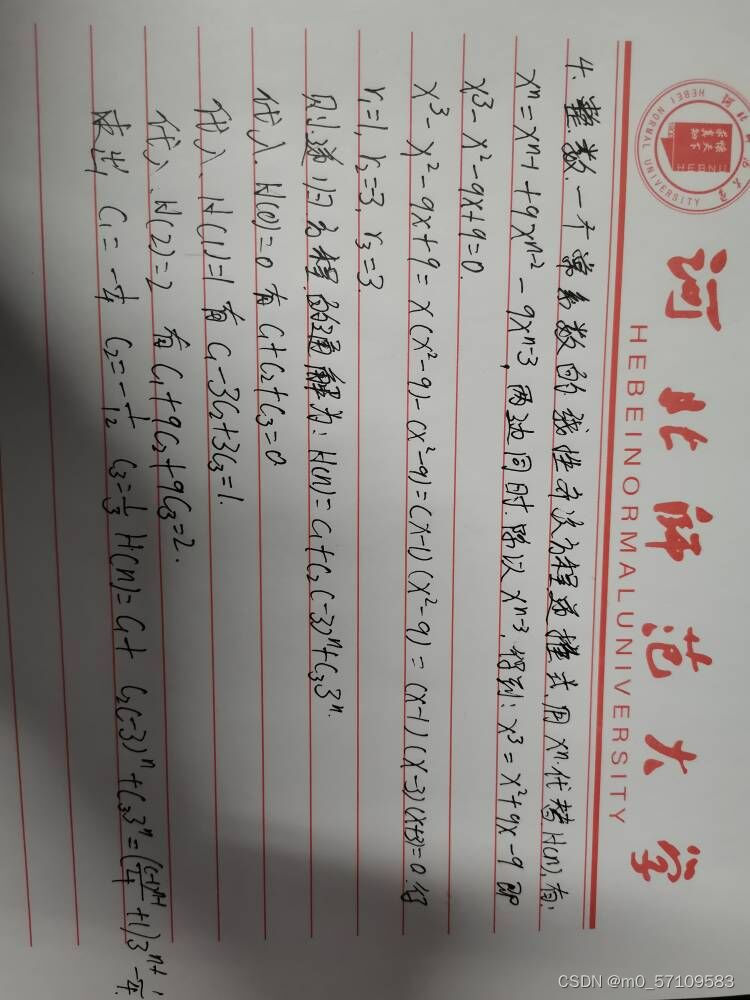 河北师范大学
HEBEI NORMAL UNIVERSITY
HEBEI NORMAL UNIVERSITY
HEBNU
4. 整数一个常系数的线性齐次方程递推式,用xⁿ代替H(n),有:
xⁿ=xⁿ⁻¹+9xⁿ⁻²-9xⁿ⁻³,两边同时除以xⁿ⁻³,得到:x³=x²+9x-9 即
x³-x²-9x+9=0.
x³-x²-9x+9=x(x²-9)-(x²-9)=(x-1)(x²-9)=(x-1)(x-3)(x+3)=0.得
r₁=1, r₂=3, r₃=3.
则递归方程的通解为:H(n)=C₁+C₂(-3)ⁿ+C₃3ⁿ.
代入、H(0)=0 有 C₁+C₂+C₃=0
代入、H(1)=1 有 C₁-3C₂+3C₃=1.
代入、H(2)=2 有 C₁+9C₂+9C₃=2.
求出 C₁=-1/4 C₂=-1/12 C₃=1/3 H(n)=C₁+ C₂(-3)ⁿ+C₃3ⁿ=((-1)ⁿ⁺¹/4+1)3ⁿ⁻¹-1/4.
CSDN @m0_57109583